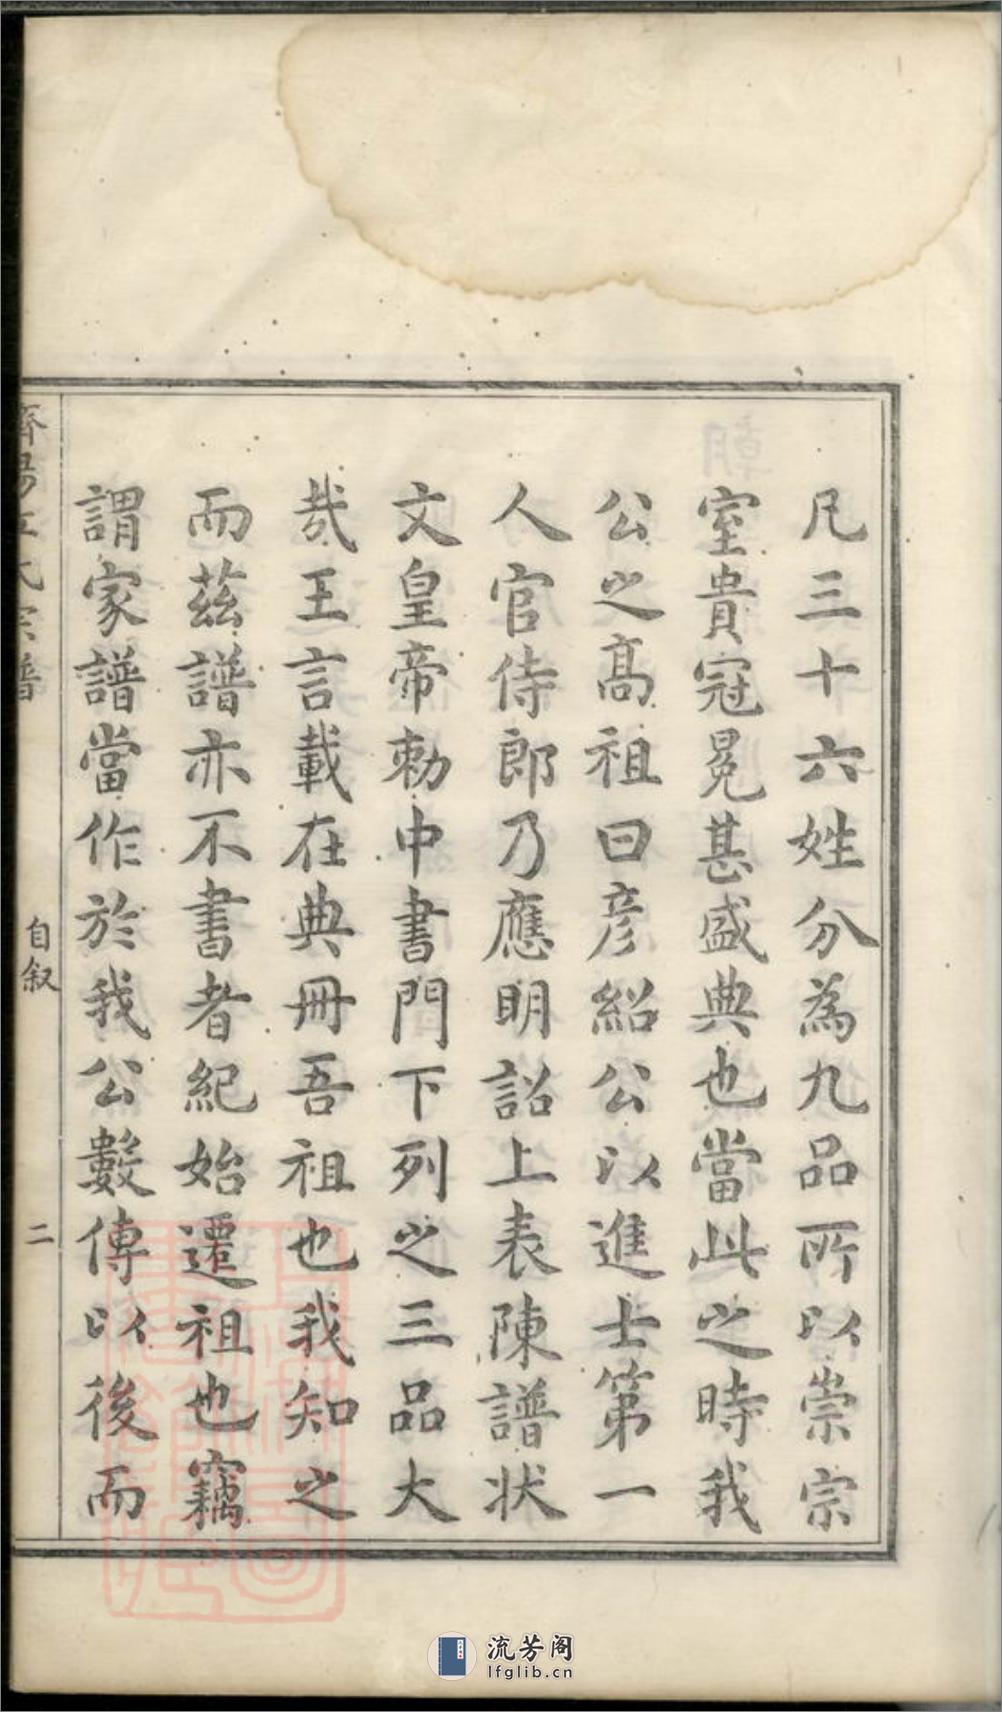 凡三十六姓分為九品所以崇宗
室貴冠冕甚盛典也當此之時我
公之髙祖曰彦紹公以進士第一
人官侍郎乃應明詔上表陳譜狀
文皇帝勅中書門下列之三品大
哉王言載在典冊吾祖也我知之
而茲譜亦不書者紀始遷祖也竊
謂家譜當作於我公數傳以後而
自叙
二
流芳阁
lfglib.cn